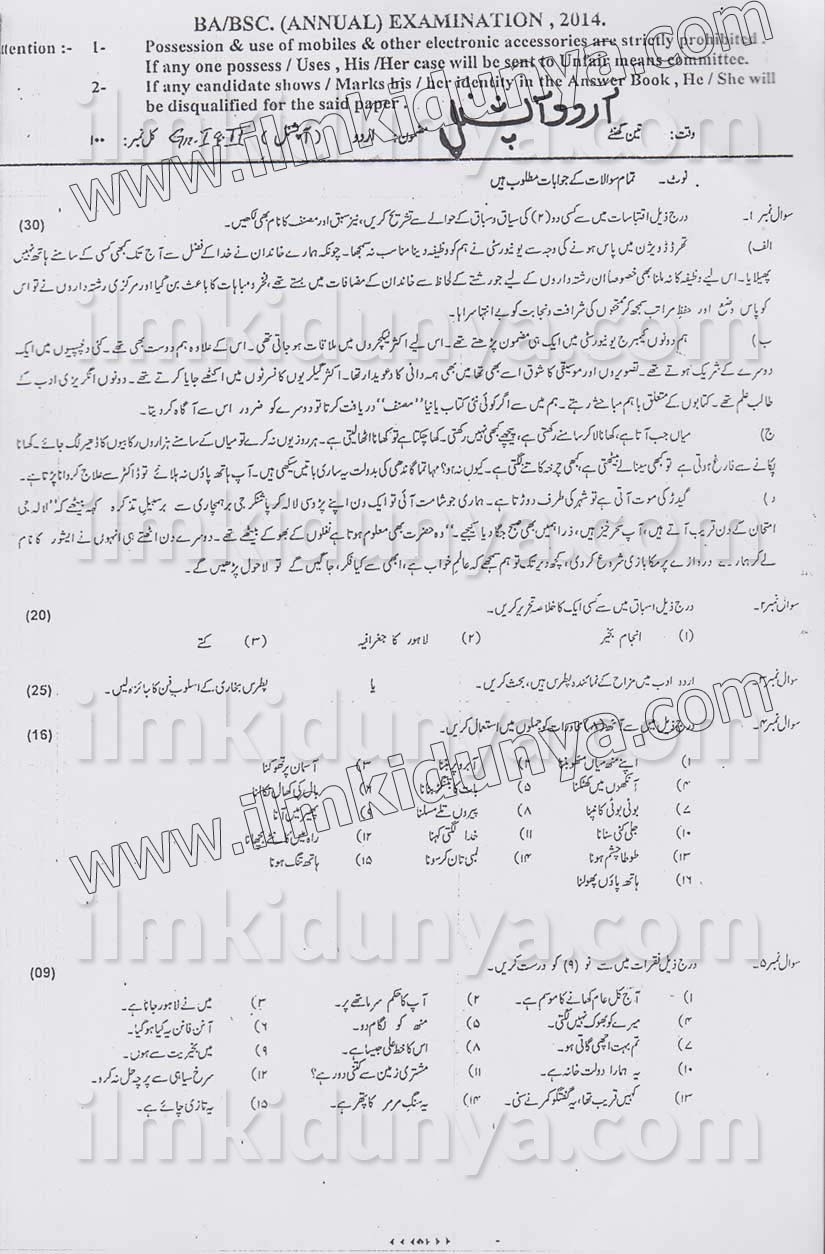 BA/BSC. (ANNUAL) EXAMINATION , 2014.
ttention :- 1- Possession & use of mobiles & other electronic accessories are strictly prohibited .
If any one possess / Uses , His /Her case will be sent to Unfair means committee.
2- If any candidate shows / Marks his / her identity in the Answer Book , He / She will
be disqualified for the said paper .
اُردو آپشنل
وقت: تین گھنٹے مضمون: اردو (آپشنل) Gr. I & II کل نمبر: ۱۰۰
نوٹ۔ تمام سوالات کے جوابات مطلوب ہیں
سوال نمبر ۱۔ درج ذیل اقتباسات میں سے کسی دو (۲) کی سیاق و سباق کے حوالے سے تشریح کریں، نیز سبق اور مصنف کا نام بھی لکھیں۔ (30)
الف) تھرڈ ڈویژن میں پاس ہونے کی وجہ سے یونیورسٹی نے ہم کو وظیفہ دینا مناسب نہ سمجھا۔ چونکہ ہمارے خاندان نے خدا کے فضل سے آج تک کبھی کسی کے سامنے ہاتھ نہیں
پھیلایا۔ اس لیے وظیفہ کا نہ ملنا بھی خصوصاً اُن رشتہ داروں کے لیے جو رشتے کے لحاظ سے خاندان کے مضافات میں بستے تھے، فخر و مباہات کا باعث بن گیا اور مرکزی رشتہ داروں نے تو اس
کو پاس وضع اور حفظِ مراتب سمجھ کر ممتحنوں کی شرافت و نجابت کو بے انتہا سراہا۔
ب) ہم دونوں کیمبرج یونیورسٹی میں ایک ہی مضمون پڑھتے تھے۔ اس لیے اکثر لیکچروں میں ملاقات ہو جاتی تھی۔ اس کے علاوہ ہم دوست بھی تھے۔ کئی دلچسپیوں میں ایک
دوسرے کے شریک ہوتے تھے۔ تصویروں اور موسیقی کا شوق اسے بھی تھا میں بھی ہمہ دانی کا دعویدار تھا۔ اکثر گیلریوں کانسرٹوں میں اکٹھے جایا کرتے تھے۔ دونوں انگریزی ادب کے
طالب علم تھے۔ کتابوں کے متعلق باہم مباحثے رہتے۔ ہم میں سے اگر کوئی نئی کتاب یا نیا "مصنف" دریافت کرتا تو دوسرے کو ضرور اس سے آگاہ کر دیتا۔
ج) میاں جب آتا ہے، کھانا لا کر سامنے رکھتی ہے، پیچھے کبھی نہیں رکھتی۔ کھا چکتا ہے تو کھانا اٹھا لیتی ہے۔ ہر روز یوں نہ کرے تو میاں کے سامنے ہزاروں رکابیوں کا ڈھیر لگ جائے۔ کھانا
پکانے سے فارغ ہوتی ہے تو کبھی سینا لے بیٹھتی ہے، کبھی چرخہ کاتنے لگتی ہے۔ کیوں نہ ہو؟ مہاتما گاندھی کی بدولت یہ ساری باتیں سیکھی ہیں۔ آپ ہاتھ پاؤں نہ ہلائے تو ڈاکٹر سے علاج کروانا پڑتا ہے۔
د) گیدڑ کی موت آتی ہے تو شہر کی طرف دوڑتا ہے۔ ہماری جو شامت آئی تو ایک دن اپنے پڑوسی لالہ کرپا شنکر جی برہمچاری سے برسبیلِ تذکرہ کہہ بیٹھے کہ "لالہ جی
امتحان کے دن قریب آتے ہیں، آپ سحر خیز ہیں، ذرا ہمیں بھی صبح جگا دیا کیجیے۔" وہ حضرت بھی معلوم ہوتا ہے نفلوں کے بھوکے بیٹھے تھے۔ دوسرے دن اٹھتے ہی انہوں نے ایشور کا نام
لے کر ہمارے دروازے پر مکا بازی شروع کر دی، کچھ دیر تک تو ہم سمجھے کہ عالمِ خواب ہے، ابھی سے کیا فکر، جاگیں گے تو لاحول پڑھیں گے۔
سوال نمبر ۲۔ درج ذیل اسباق میں سے کسی ایک کا خلاصہ تحریر کریں۔ (20)
(۱) انجام بخیر (۲) لاہور کا جغرافیہ (۳) کتے
سوال نمبر ۳۔ اردو ادب میں مزاح کے نمائندہ پطرس ہیں، بحث کریں۔ یا پطرس بخاری کے اسلوبِ فن کا جائزہ لیں۔ (25)
سوال نمبر ۴۔ درج ذیل میں سے آٹھ (۸) محاورات کو جملوں میں استعمال کریں۔ (16)
۱) اپنے منھ میاں مٹھو بننا ۲) آبرو پر بننا ۳) آسمان پر تھوکنا
۴) آنکھوں میں کھٹکنا ۵) بات کا بتنگڑ بنانا ۶) بال کی کھال نکالنا
۷) بوٹی بوٹی کانپنا ۸) پیروں تلے مسلنا ۹) پھیر میں آنا
۱۰) جلی کٹی سنانا ۱۱) خدا لگتی کہنا ۱۲) راہ میں کانٹے بچھانا
۱۳) طوطا چشم ہونا ۱۴) لمبی تان کر سونا ۱۵) ہاتھ تنگ ہونا
۱۶) ہاتھ پاؤں پھولنا
سوال نمبر ۵۔ درج ذیل فقرات میں سے نو (۹) کو درست کریں۔ (09)
۱) آج کل عام کھانے کا موسم ہے۔ ۲) آپ کا حکم سر ماتھے پر۔ ۳) میں نے لاہور جانا ہے۔
۴) میرے کو بھوک نہیں لگتی۔ ۵) منھ کو لگام دو۔ ۶) آنن فانن یہ کیا ہو گیا۔
۷) تم بہت اچھی گاتی ہو۔ ۸) اس کا خط علی جیسا ہے۔ ۹) میں بخیریت سے ہوں۔
۱۰) یہ ہمارا دولت خانہ ہے۔ ۱۱) مشتری زمین سے کتنی دور ہے؟ ۱۲) سرخ سیاہی سے پرچہ حل نہ کرو۔
۱۳) کہیں قریب تھا، یہ گفتگو کمر نے سنی۔ ۱۴) یہ سنگِ مرمر کا پتھر ہے۔ ۱۵) یہ تازی چائے ہے۔
www.ilmkidunya.com
www.ilmkidunya.com
ilmkidunya.com
ilmkidunya.com
ilmkidunya.com
ilmkidunya.com
ilmkidunya.com
ilmkidunya.com
ilmkidunya.com